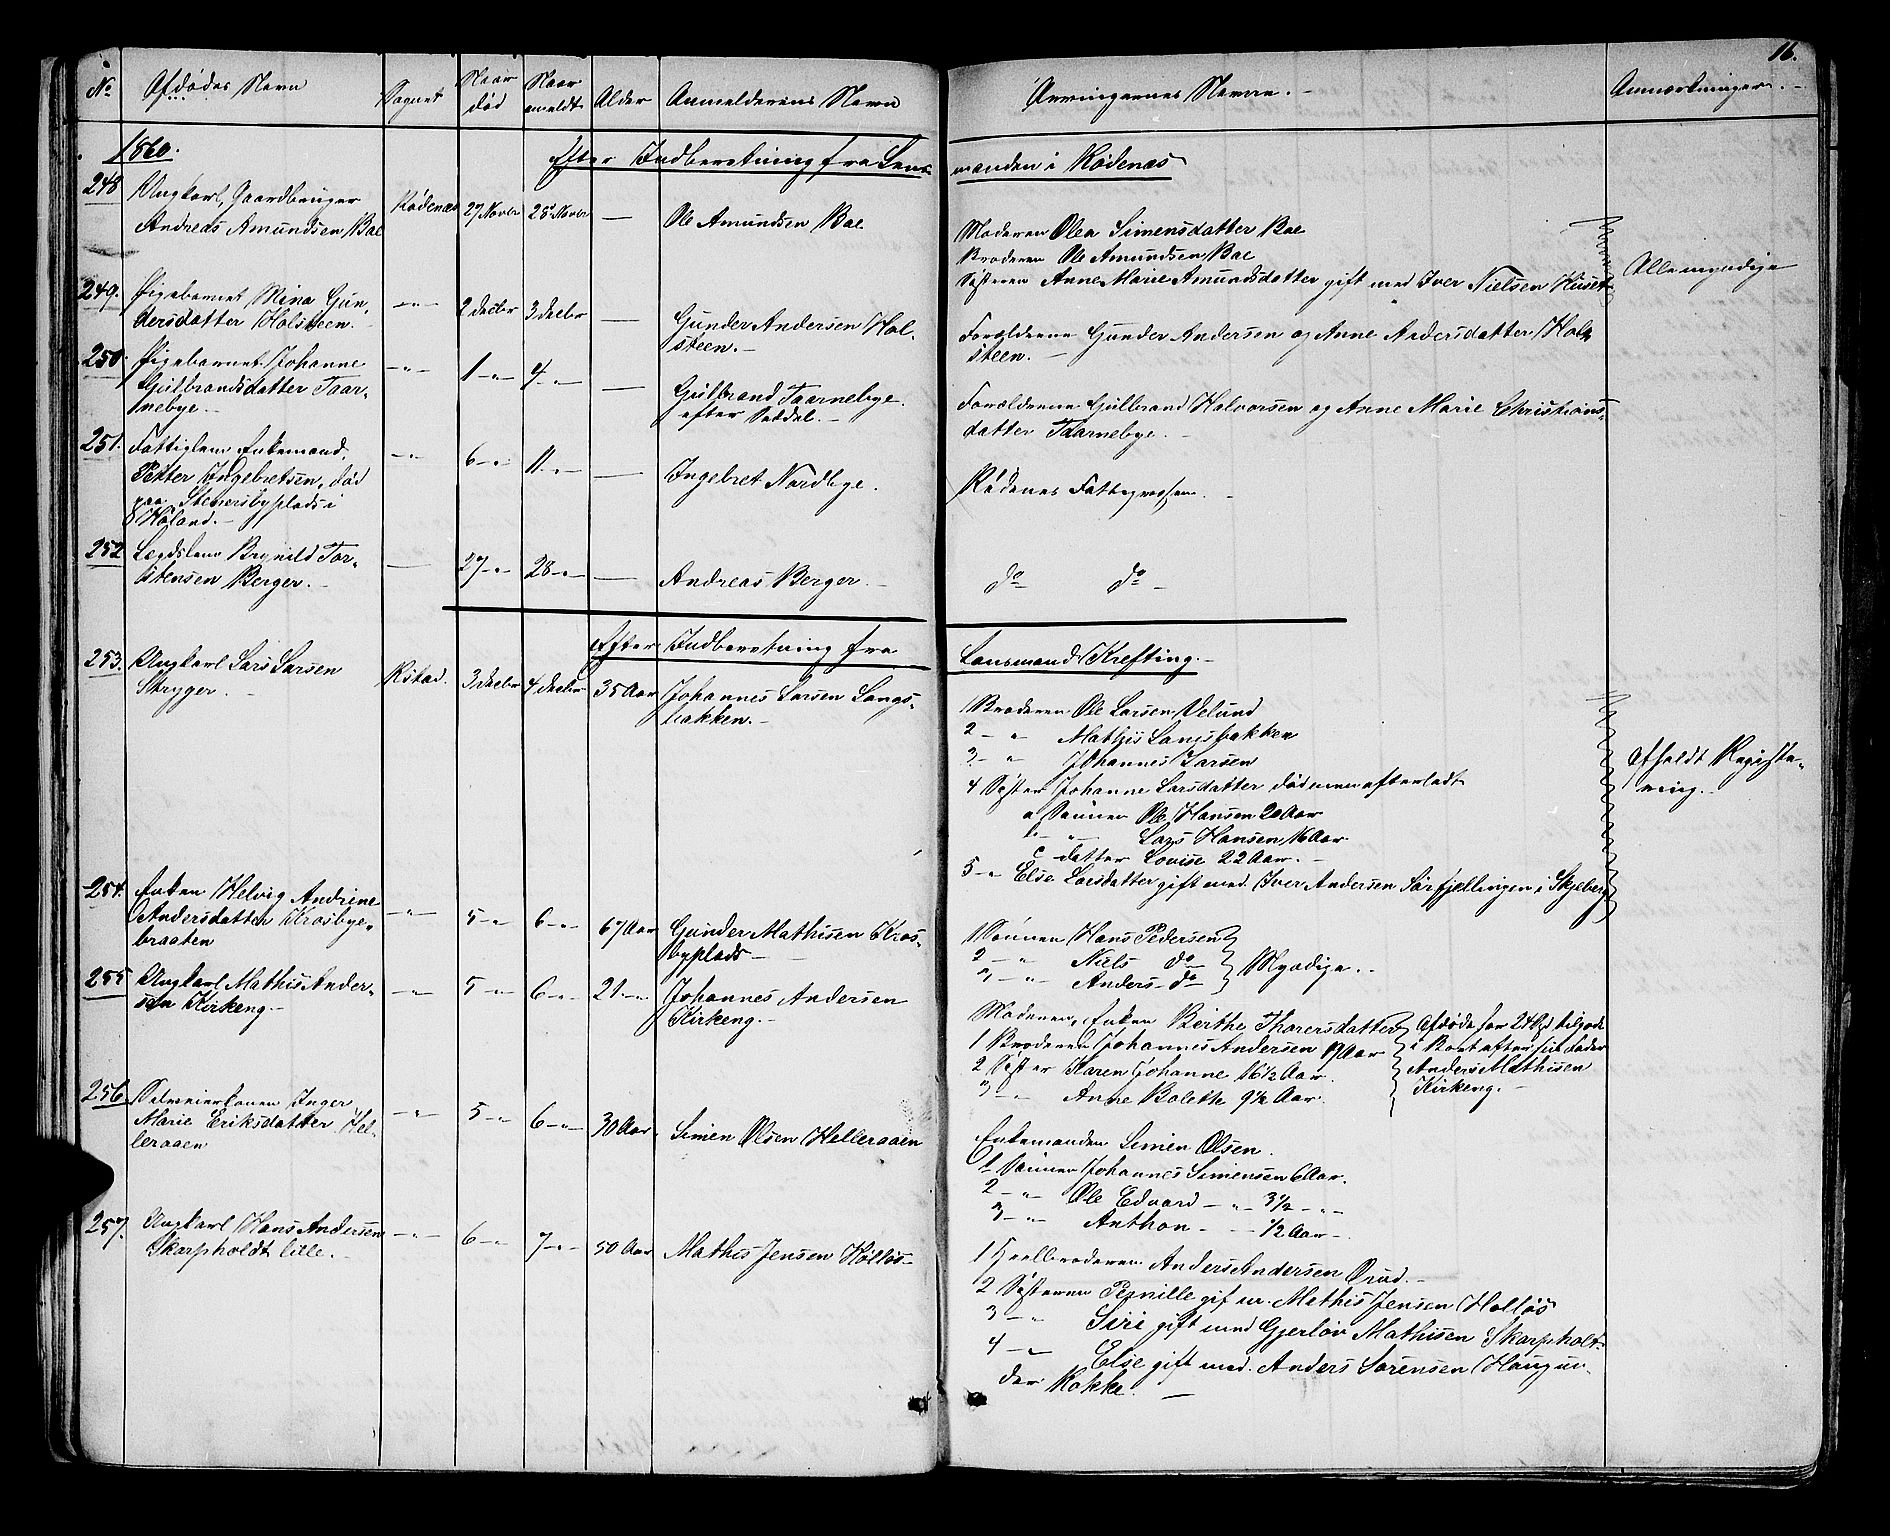 16.
No Afdødes Navn Sognet Naar død Naar anmeldt Alder Anmelderens Navn Arvingernes Navne. Anmærkninger.
1860.
Efter Indberetning fra Lensmanden i Rødenæs
248 Ungkarl, Gaardbruger Rødenæs 27 Novbr 28 Novbr — Ole Amundsen Boe
Andreas Amundsen Boe
Moderen Olea Simensdatter Boe
Broderen Ole Amundsen Boe
Søsteren Anne Marie Amundsdatter gift med Iver Nielsen Huset
Alle myndige
249. Pigebarnet Mina Gun-
dersdatter Holsteen. —"— 2 Decbr 3 Decbr — Gunder Andersen Hol-
steen.
Forældrene Gunder Andersen og Anne Andersdatter Hol-
steen.
250. Pigebarnet Johanne
Gulbrandsdatter Taar-
nebye —"— 1 —"— 4 —"— — Gulbrand Taarnebye
efter Seddel.
Forældrene Gulbrand Halvorsen og Anne Marie Christians-
datter Taarnebye.
251. Fattiglem Enkemand
Petter Ingebretsen, død
paa Stenersbyplads i
Høland. —"— 6 —"— 11 —"— — Ingebret Nordbye.
Rødenes Fattigvæsen.
252 Lægdslem Brynild Tor-
stensen Berger. — 27 —"— 28 —"— — Andreas Berger.
do do
Efter Indberetning fra Lensmand Krefting.
253. Ungkarl Lars Larsen
Stryger. Røstad. 3 Decbr 4 Decbr 35 Aar Johannes Larsen Langs-
bakken.
Broderen Ole Larsen Velund
2 —"— Mathis Langsbakken
3 —"— Johannes Larsen
4 Søster Johanne Larsdatter død men efterladt
a Sønnen Ole Hansen 20 Aar
b —"— Lars Hansen 16 Aar
c datter Lovise 22 Aar.
5 —"— Else Larsdatter gift med Iver Andersen Sørfjellingen i Skjeberg
Afholdt Registe-
ring.
254. Enken Helvig Andrine
Andersdatter Krosbye-
braaten —"— 5 —"— 6 —"— 67 Aar Gunder Mathisen Kros-
byplads
1 Sønnen Hans Pedersen
2 —"— Niels do
3 —"— Anders do
Myndige.
255 Ungkarl Mathis Ander-
sen Kirkeng. —"— 5 —"— 6 —"— 21 —"— Johannes Andersen
Kirkeng.
Moderen, Enken Berthe Thorersdatter
1 Broderen Johannes Andersen 19 Aar
2 Søster Karen Johanne 16½ Aar.
3 —"— Anne Bolette 9½ Aar.
Afdøde har 24 Spd tilgode
i Boet efter sin Fader
Anders Mathisen
Kirkeng.
256. Selveierkonen Inger
Marie Eriksdatter Hel-
leraaen —"— 5 —"— 6 —"— 30 Aar Simen Olsen Helleraaen
Enkemanden Simen Olsen.
1 Sønnen Johannes Simensen 6 Aar.
2 —"— Ole Edvard —"— 3½ —"—
3 —"— Anthon — ½ Aar
257. Ungkarl Hans Andersen
Skarpholdt lille. —"— 6 —"— 7 —"— 50 Aar Mathis Jensen Hølløs
1 Helbroderen Anders Andersen Orud.
2 Søsteren Pernille gif m. Mathis Jensen Holløs
3 —"— Siri gift med Gjerløv Mathisen Skarpholt
4 —"— Else gift med Anders Sørensen Haugun-
der Kokke.